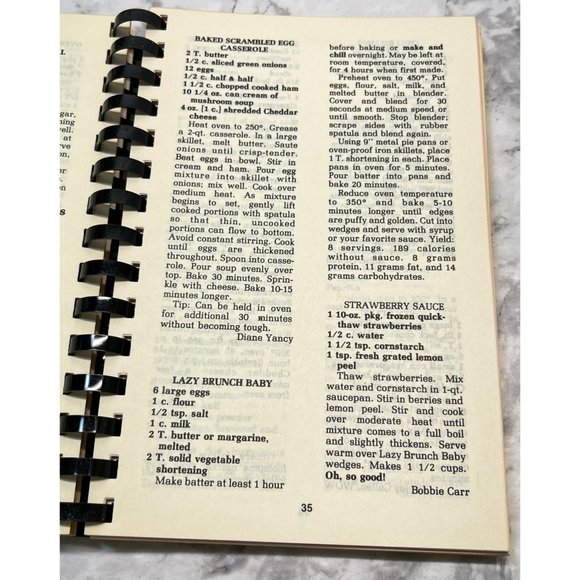 BAKED SCRAMBLED EGG
CASSEROLE
2 T. butter
1/2 c. sliced green onions
12 eggs
1/2 c. half & half
1 1/2 c. chopped cooked ham
10 1/4 oz. can cream of
mushroom soup
4 oz. [1 c.] shredded Cheddar
cheese
Heat oven to 250°. Grease
a 2-qt. casserole. In a large
skillet, melt butter. Saute
onions until crisp-tender.
Beat eggs in bowl. Stir in
cream and ham. Pour egg
mixture into skillet with
onions; mix well. Cook over
medium heat. As mixture
begins to set, gently lift
cooked portions with spatula
so that thin, uncooked
portions can flow to bottom.
Avoid constant stirring. Cook
until eggs are thickened
throughout. Spoon into casse-
role. Pour soup evenly over
top. Bake 30 minutes. Sprin-
kle with cheese. Bake 10-15
minutes longer.
Tip: Can be held in oven
for additional 30 minutes
without becoming tough.
Diane Yancy
LAZY BRUNCH BABY
6 large eggs
1 c. flour
1/2 tsp. salt
1 c. milk
2 T. butter or margarine,
melted
2 T. solid vegetable
shortening
Make batter at least 1 hour
before baking or make and
chill overnight. May be left at
room temperature, covered,
for 4 hours when first made.
Preheat oven to 450°. Put
eggs, flour, salt, milk, and
melted butter in blender.
Cover and blend for 30
seconds at medium speed or
until smooth. Stop blender;
scrape sides with rubber
spatula and blend again.
Using 9" metal pie pans or
oven-proof iron skillets, place
1 T. shortening in each. Place
pans in oven for 5 minutes.
Pour batter into pans and
bake 20 minutes.
Reduce oven temperature
to 350° and bake 5-10
minutes longer until edges
are puffy and golden. Cut into
wedges and serve with syrup
or your favorite sauce. Yield:
8 servings. 189 calories
without sauce. 8 grams
protein, 11 grams fat, and 14
grams carbohydrates.
STRAWBERRY SAUCE
1 10-oz. pkg. frozen quick-
thaw strawberries
1/2 c. water
1 1/2 tsp. cornstarch
1 tsp. fresh grated lemon
peel
Thaw strawberries. Mix
water and cornstarch in 1-qt.
saucepan. Stir in berries and
lemon peel. Stir and cook
over moderate heat until
mixture comes to a full boil
and slightly thickens. Serve
warm over Lazy Brunch Baby
wedges. Makes 1 1/2 cups.
Oh, so good!
Bobbie Carr
35